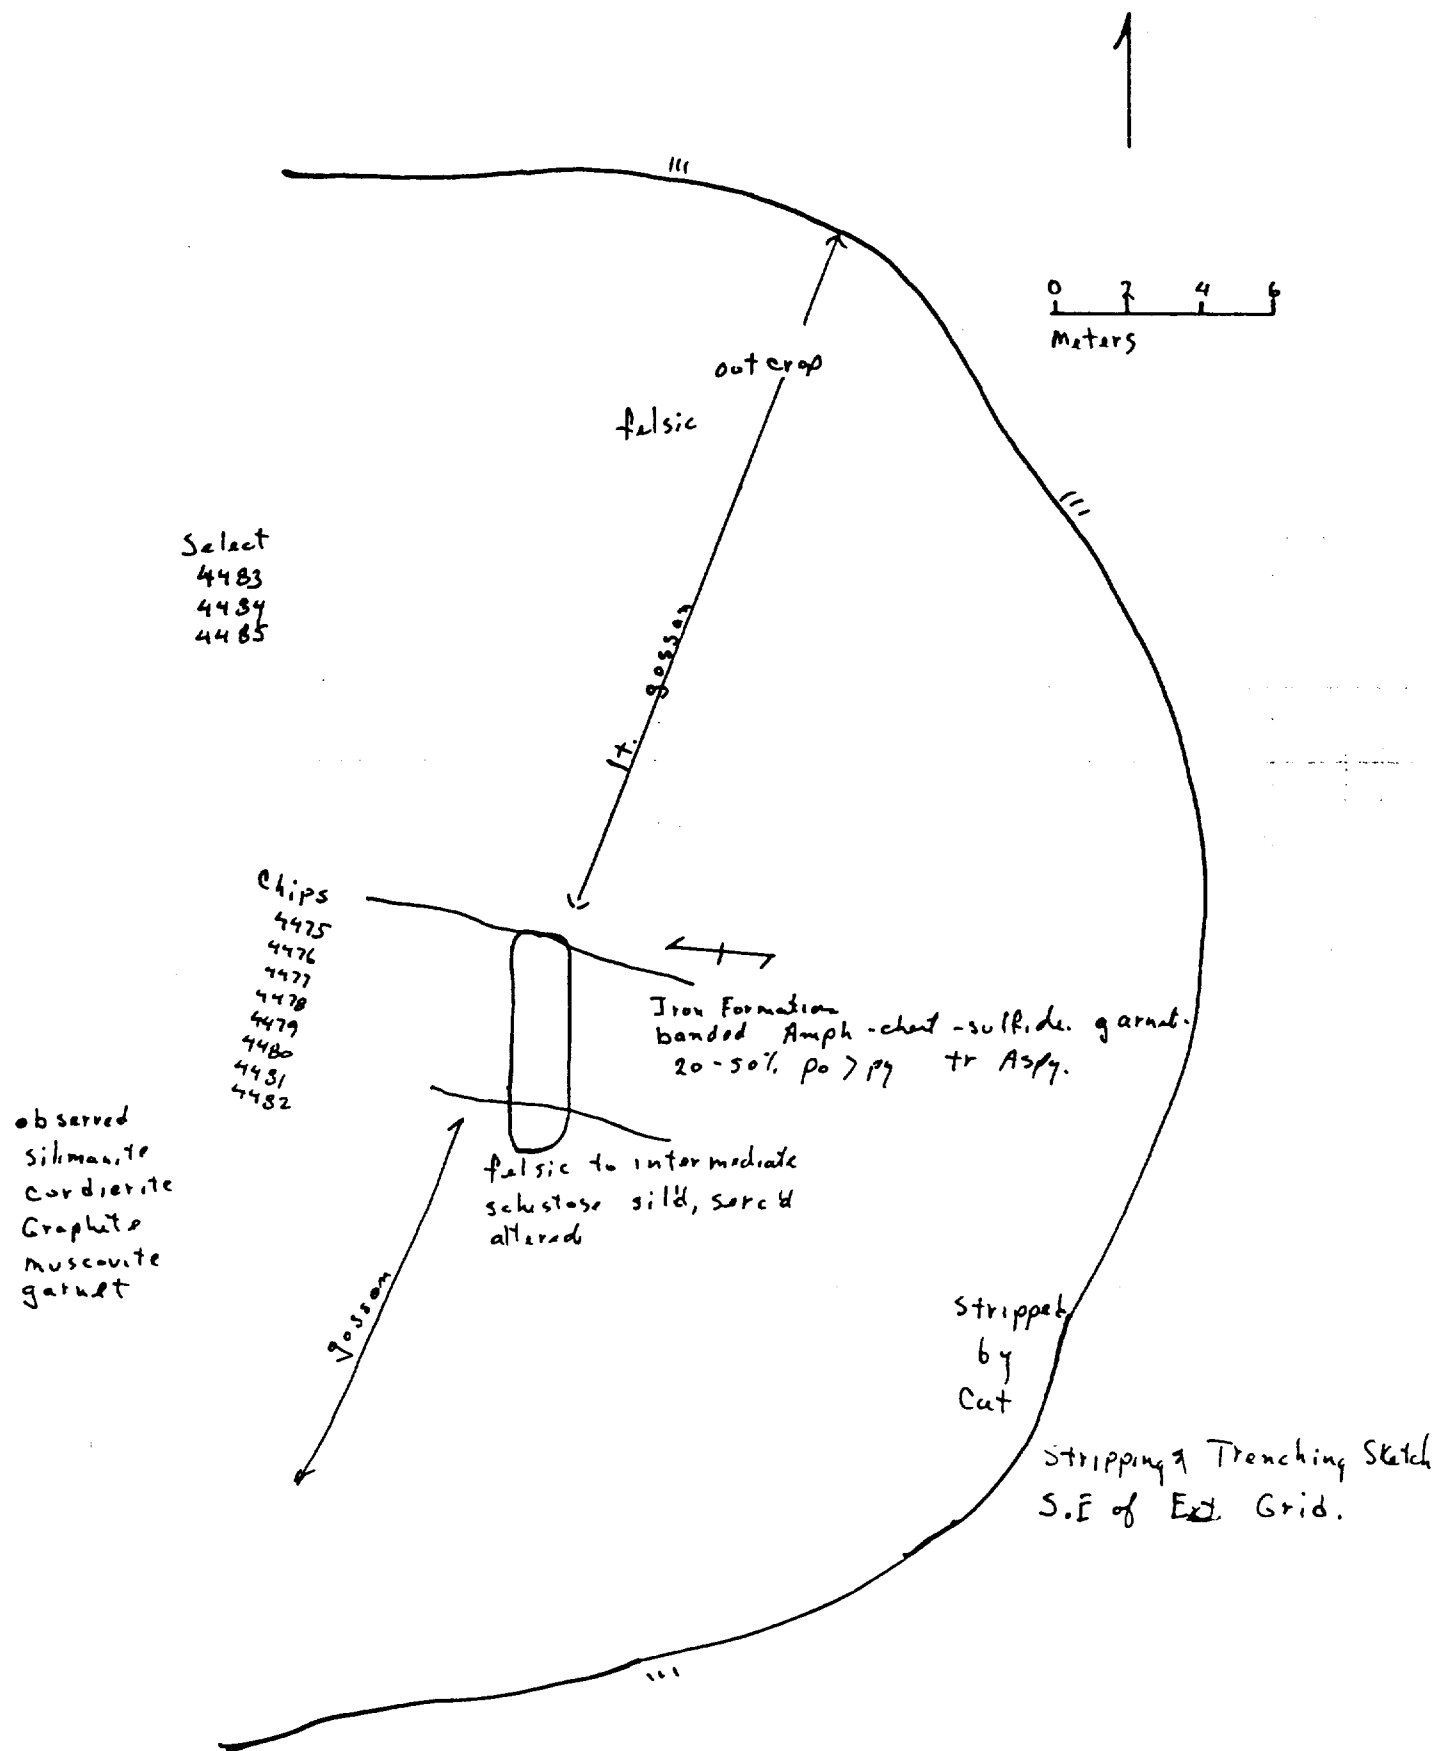 0 2 4 6
Meters
outcrop
felsic
Select
4483
4484
4485
lt. gossan
Chips
4475
4476
4477
4478
4479
4480
4481
4482
Iron Formation
banded Amph-chert-sulfide. garnet.
20-50% po > py tr Aspy.
observed
silimanite
cordierite
Graphite
muscovite
garnet
felsic to intermediate
schistose sil'd, serc'd
altered
gossan
Stripped
by
Cat
Stripping & Trenching Sketch
S.E of Ext. Grid.